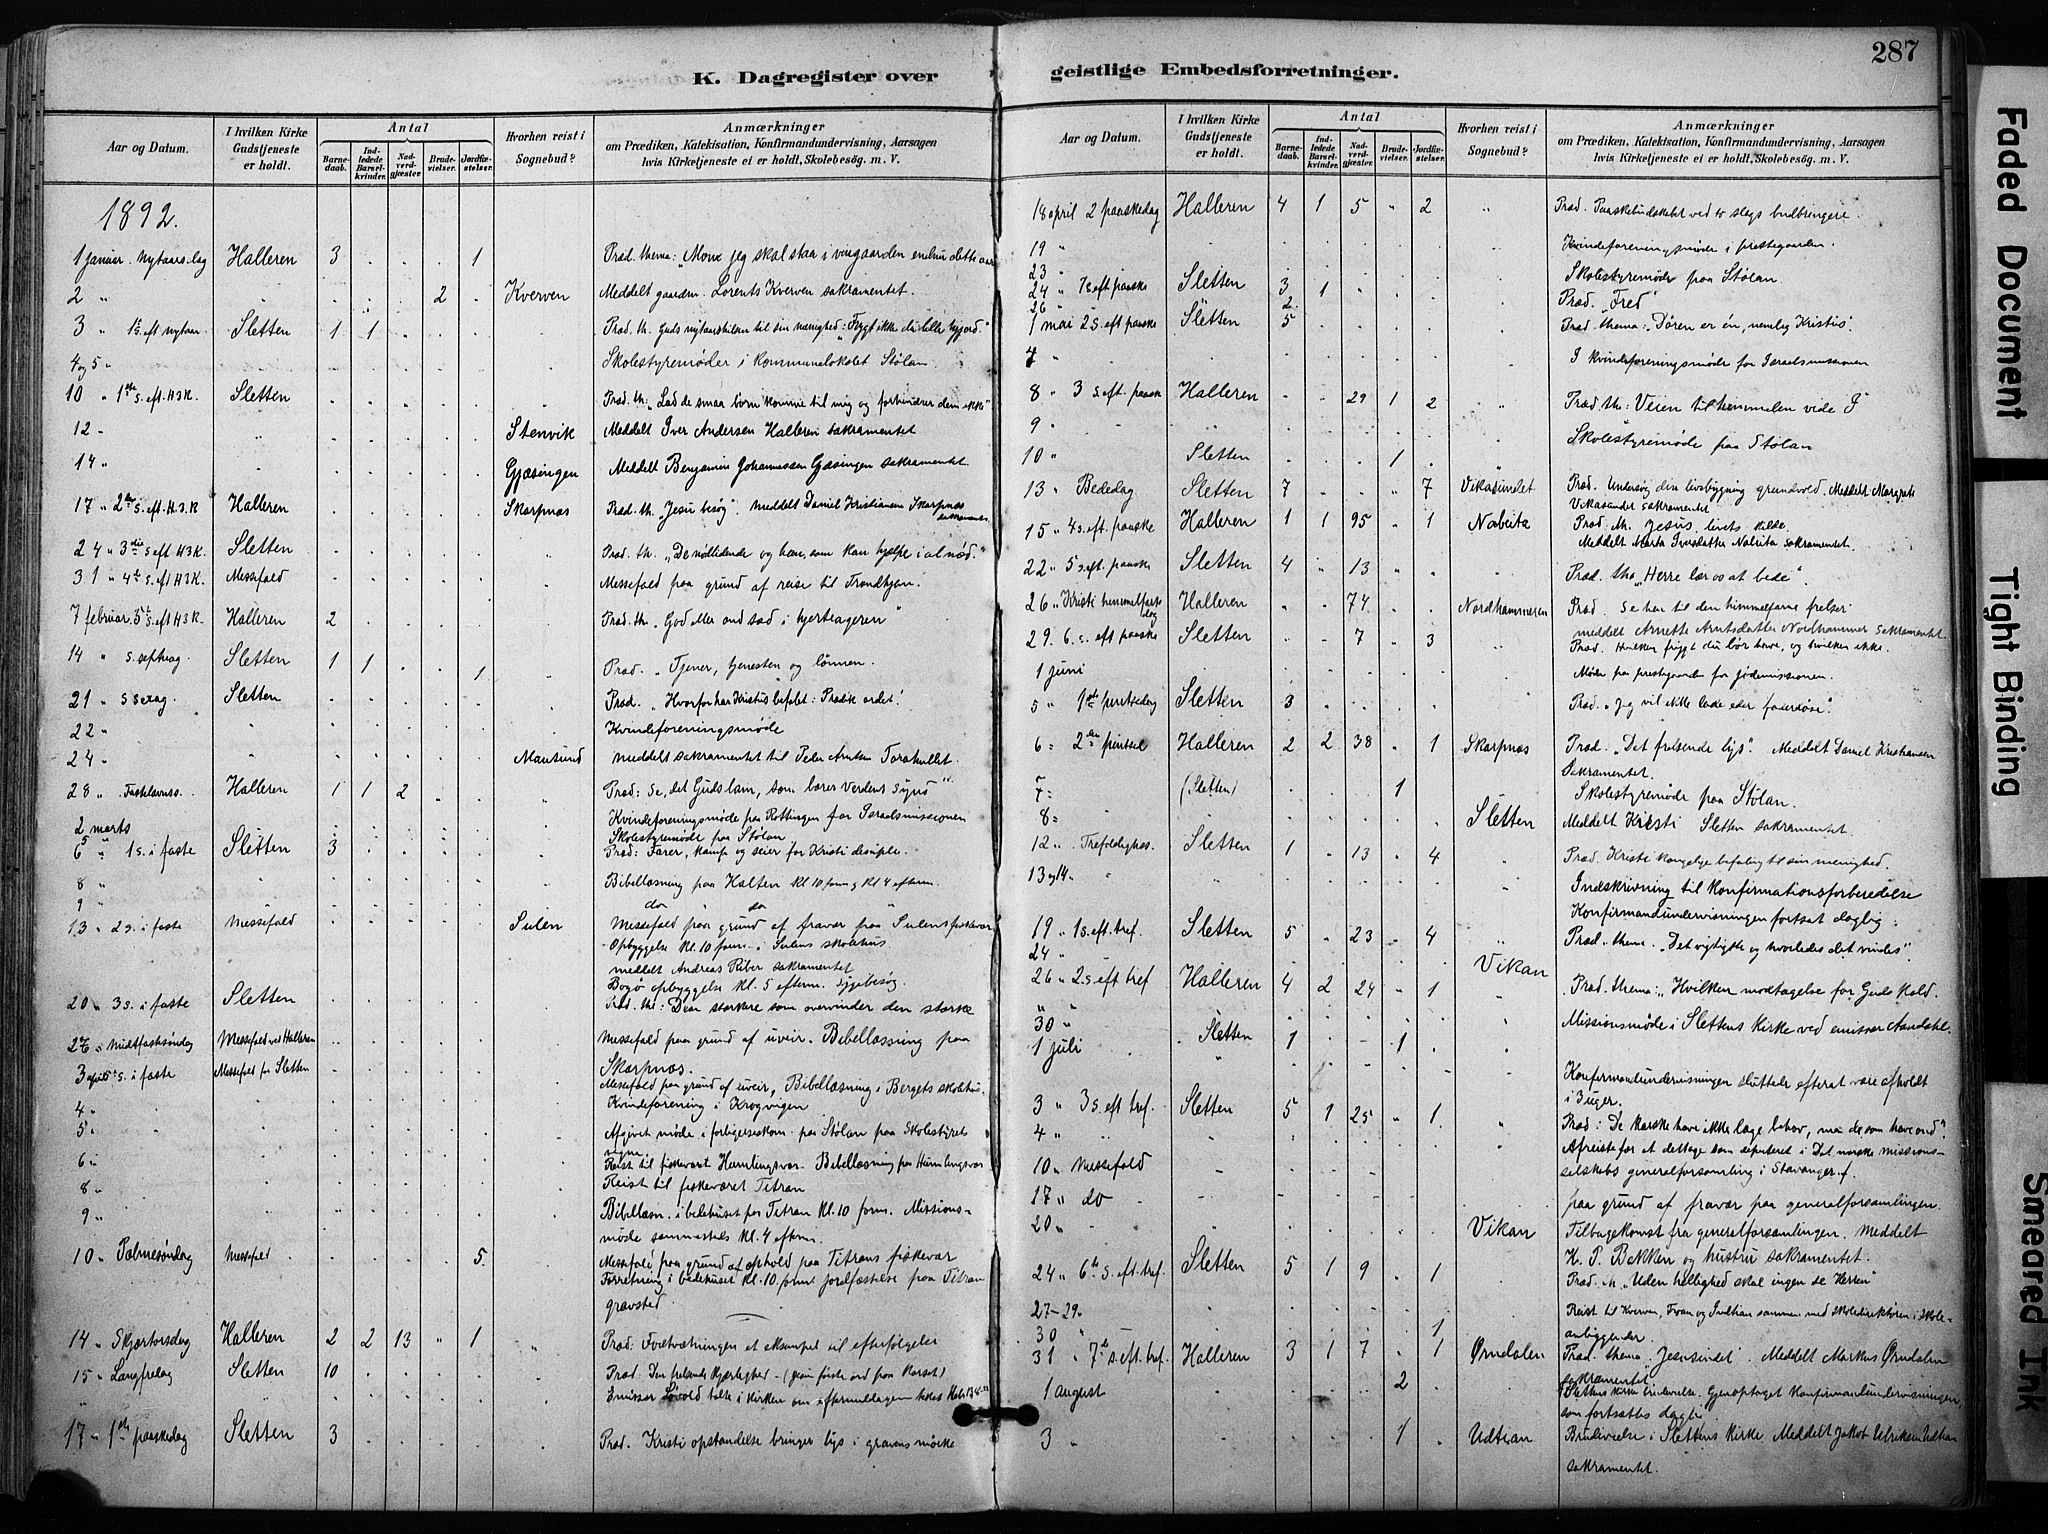 287
K. Dagregister over geistlige Embedsforretninger.
Aar og Datum.
I hvilken Kirke Gudstjeneste er holdt.
Antal
Barnedaab.
Indledede Barselkvinder.
Nadverdgjæster.
Brudevielser.
Jordfæstelser.
Hvorhen reist i Sognebud?
Anmærkninger
om Prædiken, Katekisation, Konfirmandundervisning, Aarsagen
hvis Kirketjeneste ei er holdt, Skolebesøg. m. V.
1892.
1 januar. Nytaarsdag Halleren 3 . . . 1 Præd. thema: "Mon jeg skal staa i vingaarden endnu dette aar
2 " " . . . 2 . Kverven Meddelt gaardm. Lorents Kverven sakramentet.
3 " 1 s. eft nytaar Sletten 1 1 . . . Præd. th. Guds nytaarshilsen til sin menighed: "Frygt ikke du lille hjord."
4 og 5 " Skolestyremøder i kommunelokalet Stølan.
10 " 1ste s. eft. H3K. Sletten Præd. th: "Lad de smaa børn komme til mig og forhindrer dem ikke"
12 " Stenvik Meddelt Iver Andersen Halleren sakramentet
14 " Gjæsingen Meddelt Benjamin Johannessen Gjæsingen sakramentet.
17 " 2den s. eft. H.3.K Halleren Skarpnæs Præd. th. "Jesu besøg". Meddelt Daniel Kristiansen Skarpnæs
sakramentet.
24 " 3die s. eft H3K. Sletten Præd. th. "De nødlidende og han, som kan hjælpe i al nød."
31 " 4de s. eft H3K. Messefald Messefald paa grund af reise til Trondhjem.
7 februar. 5te s. eft H3K. Halleren 2 Præd. th. "God eller ond sæd i hjerteageren"
14 " s. septuag. Sletten 1 1 . . 1 Præd. "Tjener, tjenesten og lønnen.
21 " s sexag. Sletten Præd. "Hvorfor har Kristus befalet: Prædik ordet!
22 " Kvindeforeningsmøde
24 " Mausund meddelt sakramentet til Peder Arntsen
28 " Fastelavnss. Halleren 1 1 2 " . Præd: Se, det Guds lam, som bærer Verdens Synd"
2 marts Kvindeforeningsmøde paa Rottingen for Israelsmissionen
5 " Skolestyremøde paa Stølan
6 " 1 s. i faste Sletten 3 Præd: Farer, kamp og seier for Kristi disciple.
8 " Bibellæsning paa Halten kl. 10 form og kl 4 efterm.
9 " do " do
13 " 2 s. i faste Messefald Sulen Messefald paa grund af fravær paa Sulens fiskevær
Opbyggelse kl. 10 form. i Sulens skolehus
meddelt Andreas Riber sakramentet
Bogø opbyggelse kl. 5 efterm. Sygebesøg.
20 " 3 s. i faste Sletten Præd. th: Den stærkere som overvinder den stærke
27 " Midtfastesøndag Messefald ved Halleren Messefald paa grund af uveir. Bibellæsning paa
Skarpnæs.
3 april 5te s. i faste Messefald paa Sletten Messefald paa grund af uveir, Bibellæsning i Bergets skolehus.
4 " Kvindeforening i Krogvigen
5 " Afgivet møde i forligelseskom. paa Stølan paa Skolestyrets
vegne.
6 " Reist til fiskeværet Humlingsvær. Bibellæsning paa Humlingsvær
8 " Reist til fiskeværet Titran
9 " Bibellæsn. i bedehuset paa Titran kl. 10 form. Missions-
møde sammesteds kl. 4 efterm.
10 " Palmesøndag Messefald . . . . 5. Messefald paa grund af ophold paa Titrans fiskevær
Forretning i bedehuset kl. 10 form jordfæstelse paa Titran
gravsted
14 " Skjærtorsdag Halleren 2 2 13 " 1 Præd: Fodtvætningen et eksempel til efterfølgelse
15 " Langfredag Sletten 10 Præd: Den frelsende kjærlighed - (Jesu første ord paa Korset)
Emissær Løvold talte i kirken om eftermiddagen
17 " 1ste paaskedag Sletten 3 Præd. Kristi opstandelse bringer lys i gravens mørke
18 april 2 paaskedag Halleren 4 1 5 " 2 " Præd. Paaskebudskabet ved to slags budbringere.
19 " Kvindeforeningsmøde i prestegaarden.
23 " Skolestyremøde paa Stølan
24 " 1 s. eft. paaske Sletten 3 1 Præd. "Fred"
26 " 2
1 mai 2 s. eft paaske Sletten 5 Præd. thema: Døren er én, nemlig Kristus.
4 " I kvindeforeningsmøde for Israelsmissionen
8 " 3 s. eft. paaske Halleren . . 29 1 2 Præd. th: Veien til himmelen
9 " Skolestyremøde paa Stølan
10 " Sletten . . . 1 .
13 " Bededag Sletten 7 . . . 7 Vikasundet Præd. Undersøg din livsbygnings grundvold, Meddelt Margrete
Vikasundet sakramentet
15 " 4 s. eft. paaske Halleren 1 1 95 " 1 Nabeita Præd. th. Jesus livets kilde.
Meddelt Marta Iversdatter Nabeita sakramentet.
22 " 5 s. eft. paaske Sletten 4 " 13 Præd. the "Herre lær os at bede".
26 " Kristi himmelfartsdag Halleren " " 74 Nordhammeren Præd. Se hen til den himmelfarne frelser
meddelt Arnette Arntsdatter Nordhammer sakramentet.
29. 6. s. eft paaske Sletten . . 7 . 3 Præd. Hvilken frygt du bør have, og hvilken ikke.
1 juni Møde paa prestegaarden for jødemissionen.
5 " 1ste pintsedag Sletten 3 Præd. "Jeg vil ikke lade eder faderløse".
6 " 2den pintsed Halleren 2 2 38 " 1 Skarpnæs Præd. "Det frelsende lys". Meddelt Daniel Kristiansen
Sakramentet.
7 " (Sletten) . . . 1 Skolestyremøde paa Stølan.
8 " Sletten Meddelt Kristi Sletten sakramentet.
12 " Trefoldighets. Sletten 1 " 13 " 4 Præd. Kristi kongelige befaling til sin menighed.
13 og 14 " Indskrivning til konfirmationsforberedelse
Konfirmandundervisningen fortsat daglig.
19 " 1 s. eft. tref. Sletten 5 " 23 " 4 Præd. thema. "Det vigtigste og hvorledes det vindes".
24 " Vikan
26 " 2. s. eft tref Halleren 4 2 24 " 1 Præd. thema: "Hvilken modtagelse for Guds kald.
" " Missionsmøde i Slettens Kirke ved emissær Aandahl.
30 " Sletten 1 . . 1
1 juli Konfirmandundervisningen sluttede efterat være afholdt
i 3 uger.
3 " 3 s. eft tref. Sletten 5 1 25 " 1 Præd: De karske have ikke læge behov, men de som have ondt".
4 " Afreiste for at deltage som deputeret i Det norske missions-
selskabs generalforsamling i Stavanger.
10 " Messefald
17 " do paa grund af fravær paa generalforsamlingen.
20 " Vikan Tilbagekomst fra generalforsamlingen. Meddelt
H. P. Bekken og hustru sakramentet.
24 " 6te s. eft. tref. Sletten 5 1 9 . 1 Præd. th. "Uden hellighed skal ingen se Herren"
27-29. Reist til Kverven, Fwan og Indtian sammen med skoledirektøren i skole-
anliggender.
30 " 1
31 " 7de s. eft. tref. Halleren 3 1 7 " 1 Ørndalen Præd. thema "Jesusindet". Meddelt Markus Ørndalen
sakramentet
1 august 2 Slettens kirke brudevielse. Gjenoptaget konfirmandundervisningen,
som fortsattes daglig
3 " 1 Udtian Brudevielse i Slettens Kirke Meddelt Jakob Ulriksen Udtian
sakramentet.
Faded Document
Tight Binding
Smeared Ink